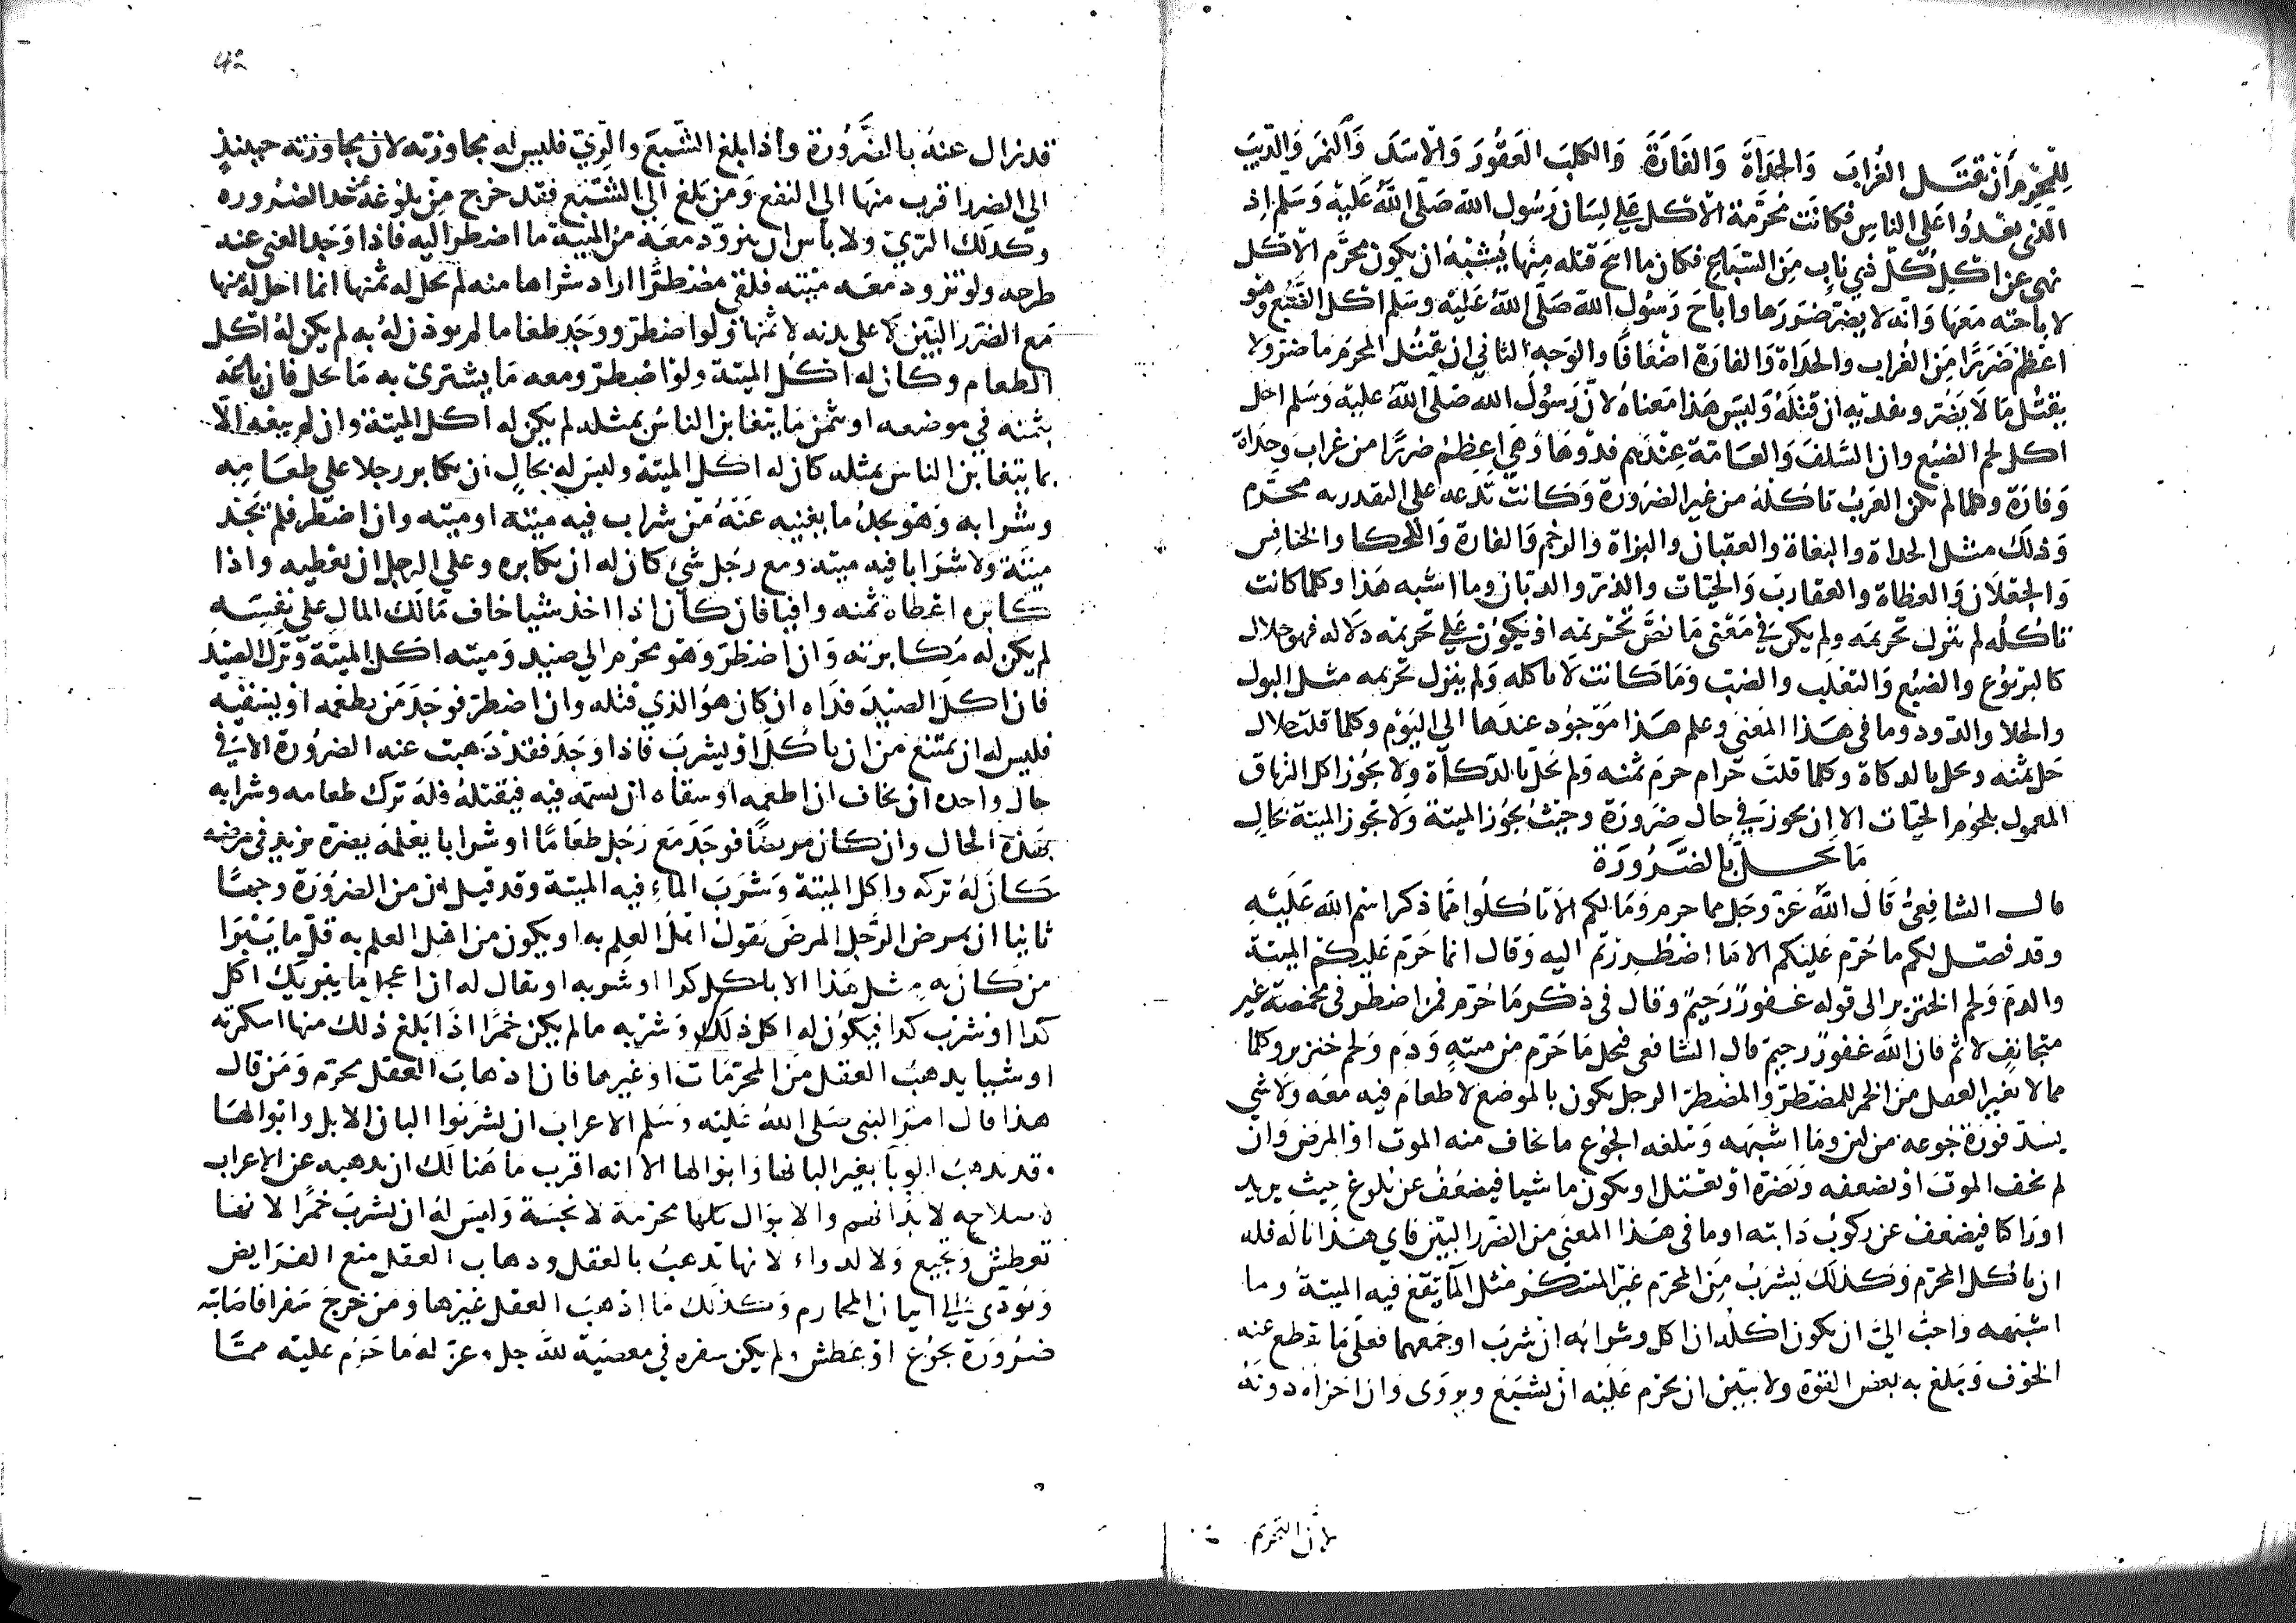 للمحرم أن يقتل الغراب والحدأة والفارة والكلب العقور والاسد والنمر والذيب
الذي يعدوا على الناس فكانت محرمة الاكل على لسان رسول الله صلى الله عليه وسلم اذ
نهى عن اكل كل ذي ناب من السباع فكان ما ابيح قتله منها يشبه ان يكون محرم الاكل
لاباحته معها وانه لا يضر ضررها واباح رسول الله صلى الله عليه وسلم اكل الضبع وهو
اعظم ضررا من الغراب والحداة والفارة اضعافا والوجه الثاني ان يقتل المحرم ما ضر ولا
يقتل ما لا يضر ويفديه ان قتله وليس هذا معناه لان رسول الله صلى الله عليه وسلم احل
اكل لحم الضبع وان السلف والعامة عندهم فدوها وهي اعظم ضررا من غراب وحداة
وفارة وكلما لم تكن العرب تاكله من غير الضرورة وكانت تدعه على التقذر به محرم
وذلك مثل الحداة والبغاة والعقبان والبزاة والرخم والفارة واللحكا والخنافس
والجعلان والعظاة والعقارب والحيات والذر والذبان وما اشبه هذا وكلما كانت
تاكله لم ينزل تحريمه ولم يكن في معنى ما نص تحريمه او يكون على تحريمه دلاله فهو حلال
كاليربوع والضبع والثعلب والضب وما كانت لا تاكله ولم ينزل تحريمه مثل البول
والخلا والدود وما في هذا المعنى وعلم هذا موجود عندها الى اليوم وكلما قلت حلال
حل ثمنه ويحل بالدكاة وكلما قلت حرام حرم ثمنه ولم تحل بالدكاة ولا يجوز اكل الترياق
المعمول بلحوم الحيات الا ان يجوز في حال ضرورة وحيث تجوز الميتة ولا تجوز الميتة بحال
ما يحل بالضرورة
قال الشافعي قال الله عز وجل مما حرم وما لكم الا تاكلوا مما ذكر اسم الله عليه
وقد فصل لكم ما حرم عليكم الا ما اضطررتم اليه وقال انما حرم عليكم الميتة
والدم ولحم الخنزير الى قوله غفور رحيم وقال في ذكر ما حرم فمن اضطر في مخمصة غير
متجانف لاثم فان الله غفور رحيم قال الشافعي فيحل ما حرم من ميته ودم ولحم خنزير وكلما
مما لا يغير العقل من الخمر للمضطر والمضطر الرجل يكون بالموضع لا طعام فيه معه ولا شي
يسد فورة جوعه من لبن وما اشبهه ويبلغه الجوع ما يخاف منه الموت او المرض وان
لم يخف الموت او يضعفه ويضره او يعتل او يكون ماشيا فيضعف عن بلوغ حيث يريد
او راكبا فيضعف عن ركوب دابته او ما في هذا المعنى من الضرر البين فاي هذا ناله فله
ان ياكل المحرم وكذلك يشرب من المحرم غير المسكر مثل الما يقع فيه الميتة وما
اشبهه واحب الي ان يكون اكله ان اكل وشرابه ان شرب او جمعهما فعلى ما يقطع عنه
الخوف ويبلغ به بعض القوة ولا يبين ان يحرم عليه ان يشبع ويروى وان اجزاه دونه
لان التحريم
قد زال عنه بالضرورة واذا بلغ الشبع والري فليس له مجاوزته لان مجاوزته حينيذ
الى الضرر اقرب منها الى النفع ومن بلغ الى الشبع فقد خرج من بلوغه حد الضروره
وكذلك الري ولا باس ان يتزود معه من الميتة ما اضطر اليه فاذا وجد الغنى عنه
طرحه ولو تزود معه ميته فلقي مضطرا اراد شراها منه لم يحل له ثمنها انما احل له منها
مع الضرر البين لا على بدنه لا ثمنها ولو اضطر ووجد طعاما لم يوذن له به لم يكن له اكل
الطعام وكان له اكل الميتة ولو اضطر ومعه ما يشتري به ما يحل فان باعه
بثمنه في موضعه او بثمن ما يتغابن الناس بمثله لم يكن له اكل الميتة وان لم يبعه الا
بما يتغابن الناس بمثله كان له اكل الميتة وليس له بحال ان يكابر رجلا على طعامه
وشرابه وهو يجد ما يغنيه عنه من شراب فيه ميتة او ميته وان اضطر فلم يجد
ميتة ولا شرابا فيه ميته ومع رجل شي كان له ان يكابره وعلى الرجل ان يعطيه واذا
كابره اعطاه ثمنه وافيا فان كان اذا اخذ شيا خاف مالك المال على نفسه
لم يكن له مكابرته وان اضطر وهو محرم الى صيد وميته اكل الميتة وترك الصيد
فان اكل الصيد فداه ان كان هو الذي قتله وان اضطر فوجد من يطعمه او يسقيه
فليس له ان يمتنع من ان ياكل او يشرب فاذا وجد فقد ذهبت عنه الضرورة الا في
حال واحده ان يخاف ان اطعمه او سقاه ان يسمه فيه فيقتله فله ترك طعامه وشرابه
بهذه الحال وان كان مريضا فوجد مع رجل طعاما او شرابا يعلمه يضره يزيد في مرضه
كان له تركه واكل الميتة وشرب الماء فيه الميتة وقد قيل ان من الضرورة وجها
ثانيا ان يمرض الرجل المرض يقول اهل العلم به او يكون من اهل العلم به قل ما يبرا
من كان به مثل هذا الا باكل كذا او شربه او يقال له ان اعجل ما يبريك اكل
كذا او شرب كذا فيكون له اكل ذلك وشربه ما لم يكن خمرا اذا بلغ ذلك منها اسكرته
او شيا يذهب العقل من المحرمات او غيرها فان اذهاب العقل محرم ومن قال
هذا قال امر النبي صلى الله عليه وسلم الاعراب ان يشربوا البان الابل وابوالها
وقد يذهب الوبا بغير البانها وابوالها الا انه اقرب ما هنالك ان يذهبه عن الاعراب
لاصلاحه لابدانهم والابوال كلها محرمة لانجسة وليس له ان يشرب خمرا لانها
تعطش وتجيع ولا لدواء لانها تذهب بالعقل وذهاب العقل منع الفرايض
ويودي الى اتيان المحارم وكذلك ما اذهب العقل غيرها ومن خرج سفرا فاصابته
ضرورة بجوع او عطش ولم يكن سفره في معصية لله جل وعز له ما حرم عليه مما